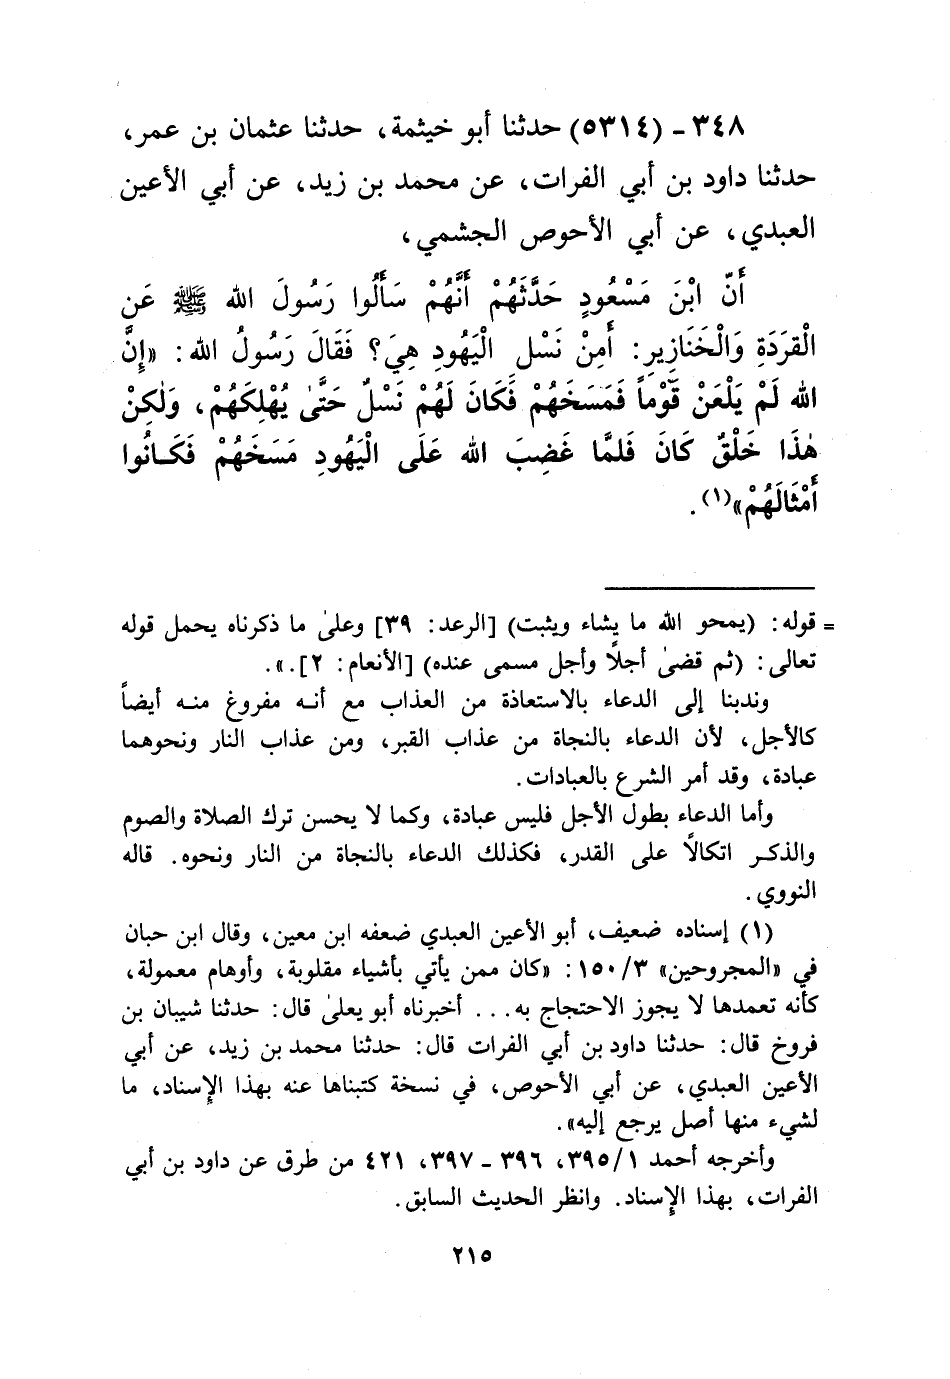 ٣٤٨ - (٥٣١٤) حدثنا أبو خيثمة، حدثنا عثمان بن عمر،
حدثنا داود بن أبي الفرات، عن محمد بن زيد، عن أبي الأعين
العبدي، عن أبي الأحوص الجشمي،
أَنّ ابْنَ مَسْعُودٍ حَدَّثَهُمْ أَنَّهُمْ سَأَلُوا رَسُولَ الله ﷺ عَن
الْقِرَدَةِ وَالْخَنَازِير: أَمِنْ نَسْلِ الْيَهُودِ هِيَ؟ فَقَالَ رَسُولُ الله: «إِنَّ
الله لَمْ يَلْعَنْ قَوْماً فَمَسَخَهُمْ فَكَانَ لَهُمْ نَسْلٌ حَتَّىٰ يُهْلِكَهُمْ، وَلٰكِنْ
هٰذَا خَلْقٌ كَانَ فَلَمَّا غَضِبَ الله عَلَى الْيَهُودِ مَسَخَهُمْ فَكَانُوا
أَمْثَالَهُمْ»(١).
= قوله: (يمحو الله ما يشاء ويثبت) [الرعد: ٣٩] وعلىٰ ما ذكرناه يحمل قوله
تعالى: (ثم قضىٰ أجلاً وأجل مسمى عنده) [الأنعام: ٢].».
وندبنا إلى الدعاء بالاستعاذة من العذاب مع أنه مفروغ منه أيضاً
كالأجل، لأن الدعاء بالنجاة من عذاب القبر، ومن عذاب النار ونحوهما
عبادة، وقد أمر الشرع بالعبادات.
وأما الدعاء بطول الأجل فليس عبادة، وكما لا يحسن ترك الصلاة والصوم
والذكر اتكالاً على القدر، فكذلك الدعاء بالنجاة من النار ونحوه. قاله
النووي.
(١) إسناده ضعيف، أبو الأعين العبدي ضعفه ابن معين، وقال ابن حبان
في «المجروحين» ٣/ ١٥٠: «كان ممن يأتي بأشياء مقلوبة، وأوهام معمولة،
كأنه تعمدها لا يجوز الاحتجاج به... أخبرناه أبو يعلىٰ قال: حدثنا شيبان بن
فروخ قال: حدثنا داود بن أبي الفرات قال: حدثنا محمد بن زيد، عن أبي
الأعين العبدي، عن أبي الأحوص، في نسخة كتبناها عنه بهذا الإسناد، ما
لشيء منها أصل يرجع إليه».
وأخرجه أحمد ١/ ٣٩٥، ٣٩٦ - ٣٩٧، ٤٢١ من طرق عن داود بن أبي
الفرات، بهذا الإسناد. وانظر الحديث السابق.
٢١٥